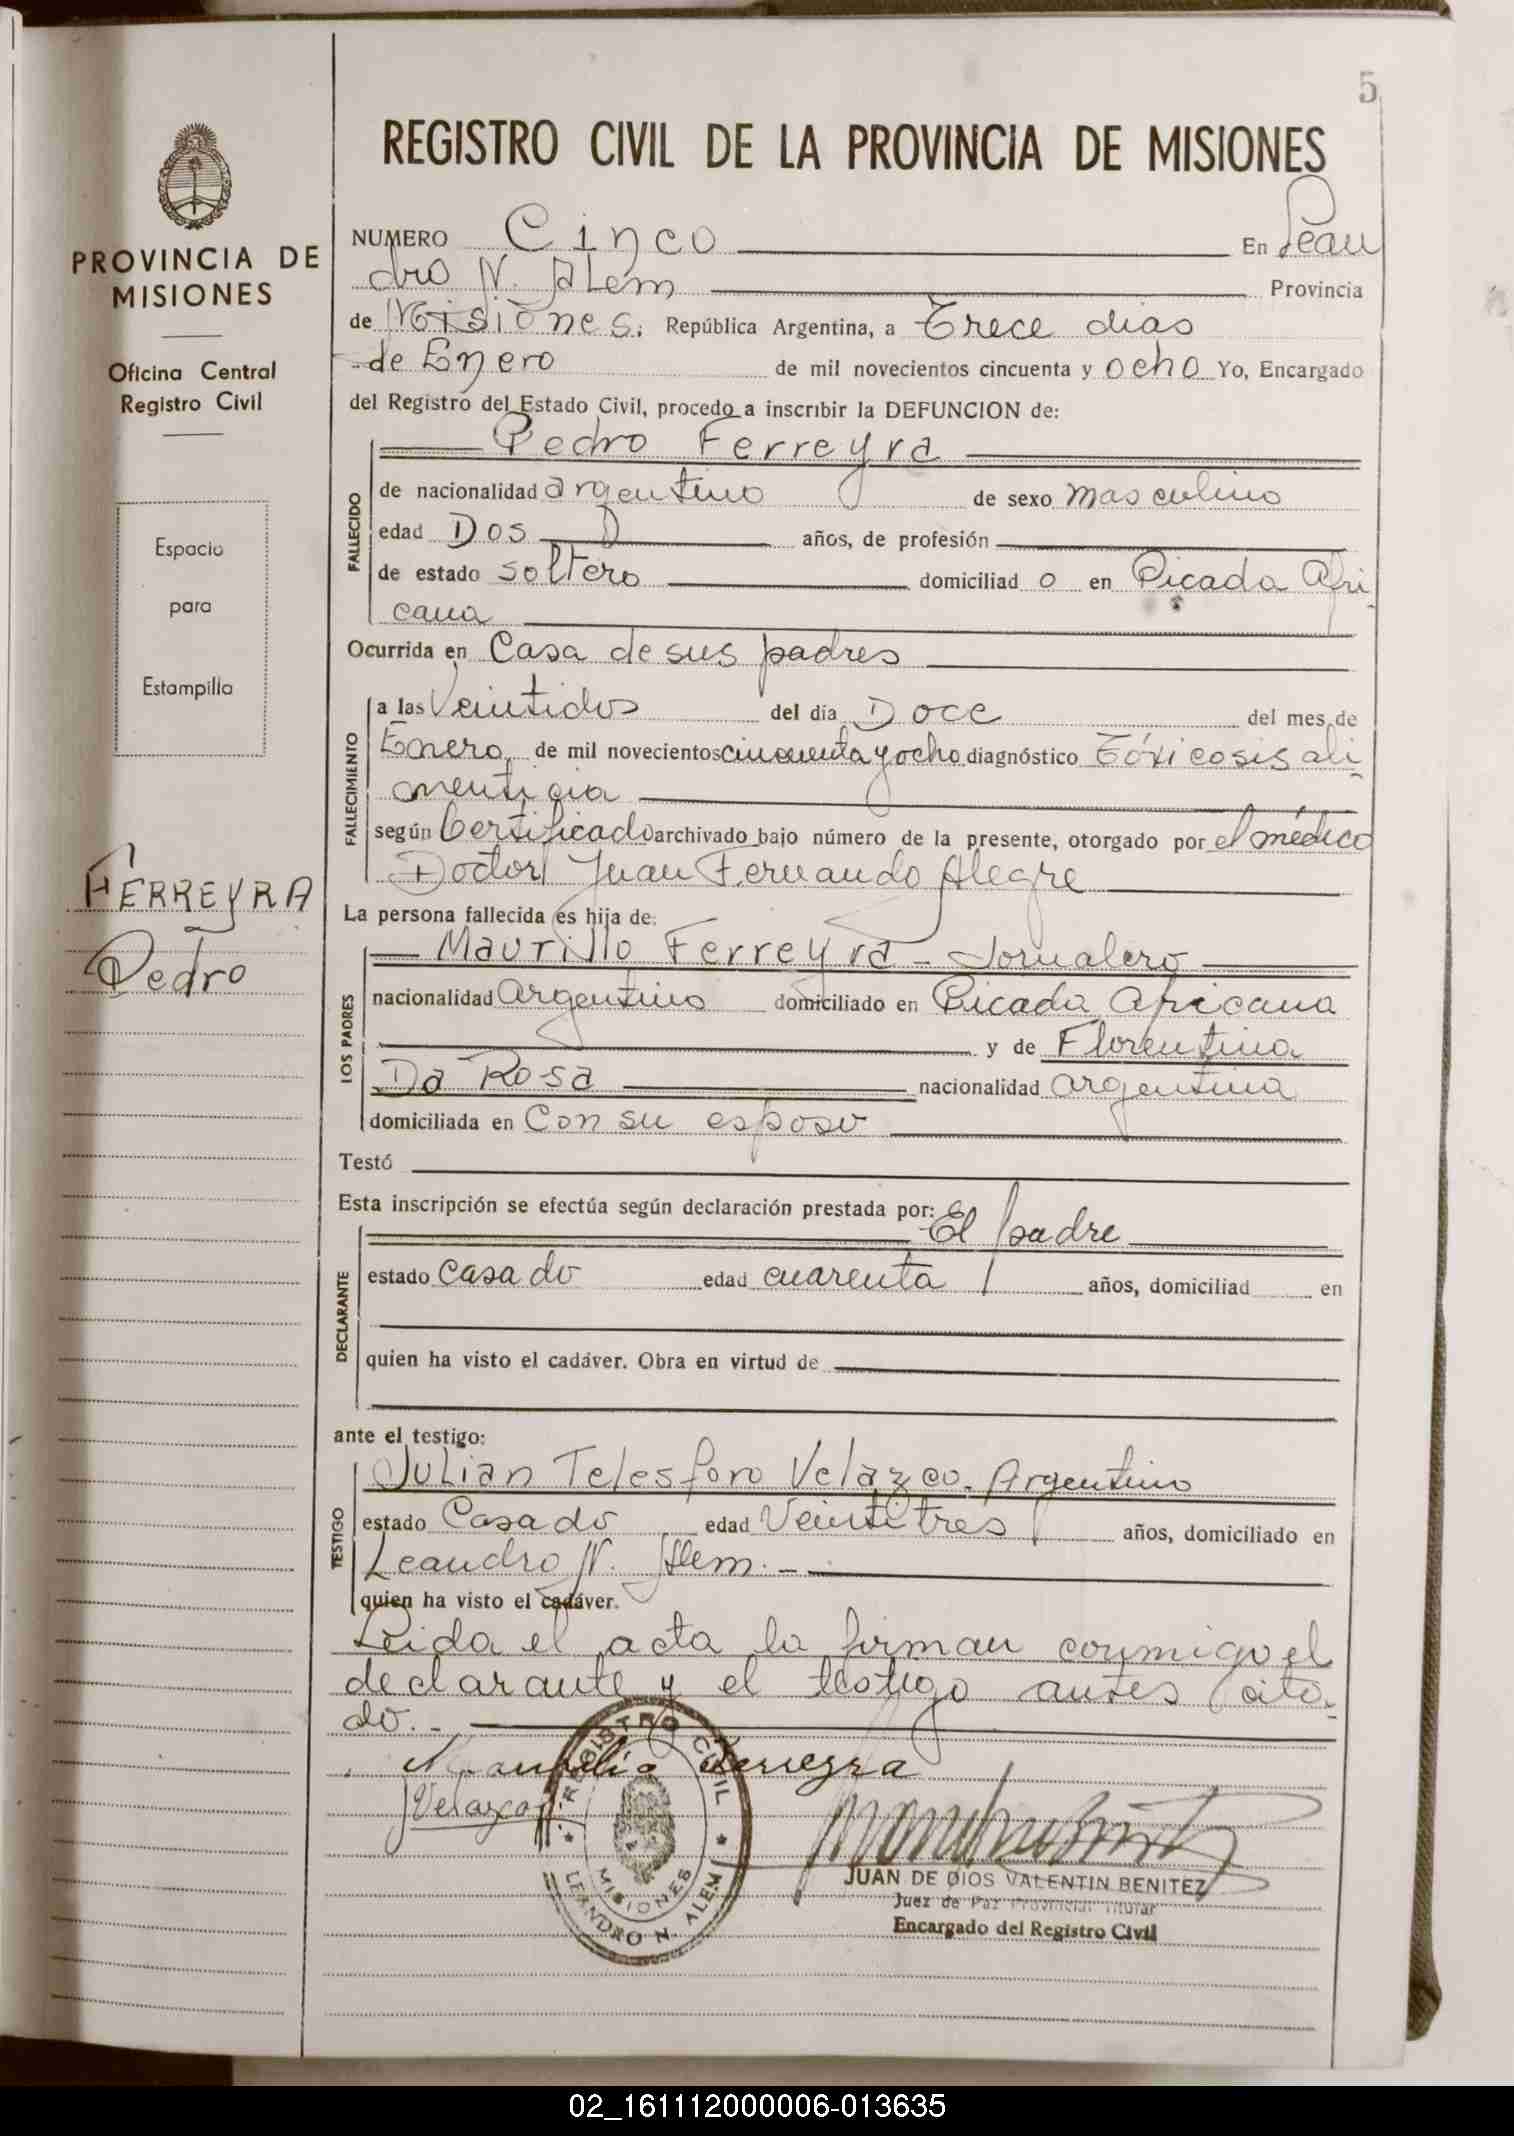 5
REGISTRO CIVIL DE LA PROVINCIA DE MISIONES
PROVINCIA DE
MISIONES
Oficina Central
Registro Civil
Espacio
para
Estampilla
FERREYRA
Pedro
NUMERO Cinco En Lean
dro N. Alem Provincia
de Misiones. República Argentina, a Trece dias
de Enero de mil novecientos cincuenta y ocho Yo, Encargado
del Registro del Estado Civil, procedo a inscribir la DEFUNCION de:
Pedro Ferreyra
FALLECIDO
de nacionalidad argentino de sexo masculino
edad Dos años, de profesión
de estado soltero domiciliad o en Picada Afri
cana
Ocurrida en Casa de sus padres
FALLECIMIENTO
a las Veintidos del día Doce del mes de
Enero de mil novecientos cincuenta y ocho diagnóstico Tóxicosis ali
menticia
según Certificado archivado bajo número de la presente, otorgado por el médico
Doctor Juan Fernando Alegre
La persona fallecida es hija de:
LOS PADRES
Maurilio Ferreyra - Jornalero
nacionalidad Argentino domiciliado en Picada Africana
y de Florentina
Da Rosa nacionalidad argentina
domiciliada en Con su esposo
Testó
Esta inscripción se efectúa según declaración prestada por: El padre
DECLARANTE
estado Casado edad cuarenta años, domiciliad en
quien ha visto el cadáver. Obra en virtud de
ante el testigo:
TESTIGO
Julian Telesforo Velazco. Argentino
estado Casado edad Veintitres años, domiciliado en
Leandro N. Alem. -
quien ha visto el cadáver.
Leida el acta la firman conmigo el
declarante y el testigo antes cita-
do. -
Maurilio Ferreyra
JVelazco
REGISTRO CIVIL
MISIONES
LEANDRO N. ALEM
JUAN DE DIOS VALENTIN BENITEZ
Juez de Paz Provincial Titular
Encargado del Registro Civil
02_161112000006-013635